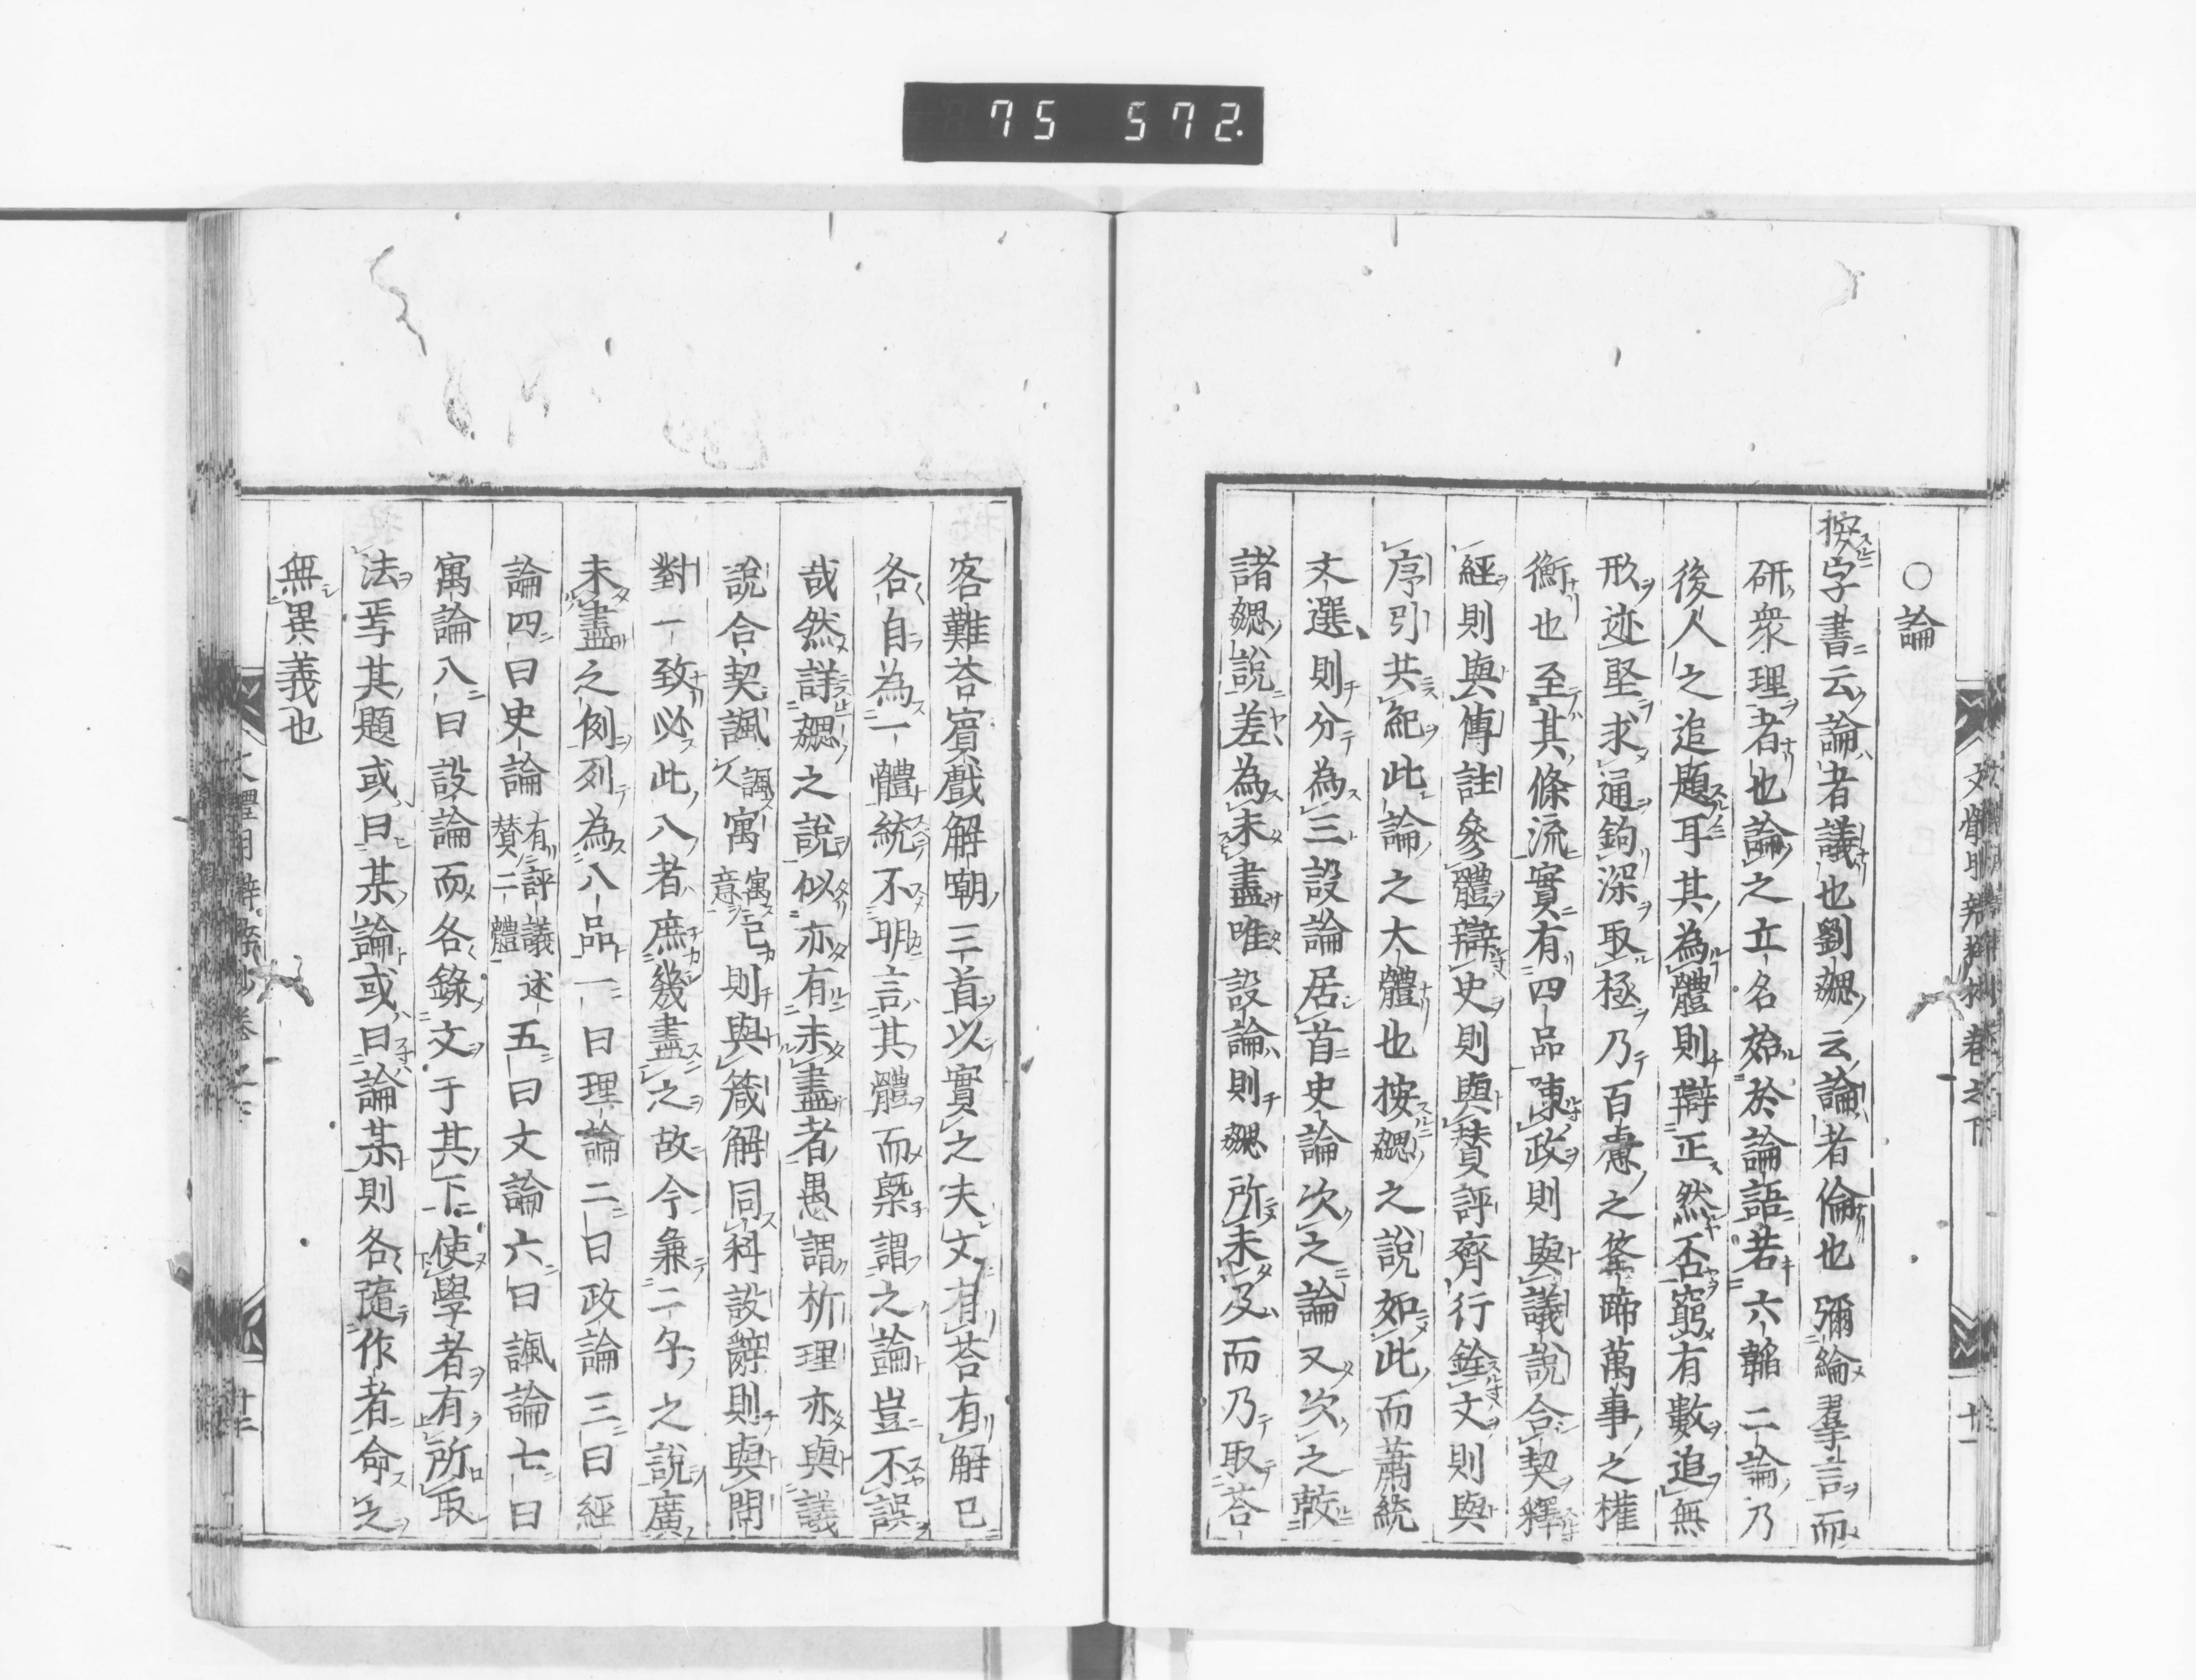 75 572.
○論
按字書云論者議也劉勰云論者倫也彌綸羣言而
研衆理者也論之立名始於論語若六韜二論乃
後人之追題耳其為體則辯正然否窮有數追無
形迹堅求通鉤深取極乃百慮之筌蹄萬事之權
衡也至其條流實有四品陳政則與議說合契釋
經則與傳註參體辯史則與賛評齊行銓文則與
序引共紀此論之大體也按勰之說如此而蕭統
文選則分為三設論居首史論次之論又次之較
諸勰說差為未盡唯設論則勰所未及而乃取荅
文體明辯粹抄卷之下
十一
客難荅賓戲解嘲三首以實之夫文有荅有解已
各自為一體統不明言其體而槩謂之論豈不誤
哉然詳勰之說似亦有未盡者愚謂析理亦與議
說合契諷諷人寓寓己意則與箴解同科設辭則與問
對一致必此八者庶幾盡之故今兼二子之說廣
未盡之例列為八品一曰理論二曰政論三曰經
論四曰史論有評議述賛二體五曰文論六曰諷論七曰
寓論八曰設論而各錄文于其下使學者有所取
法焉其題或曰某論或曰論某則各隨作者命之
無異義也